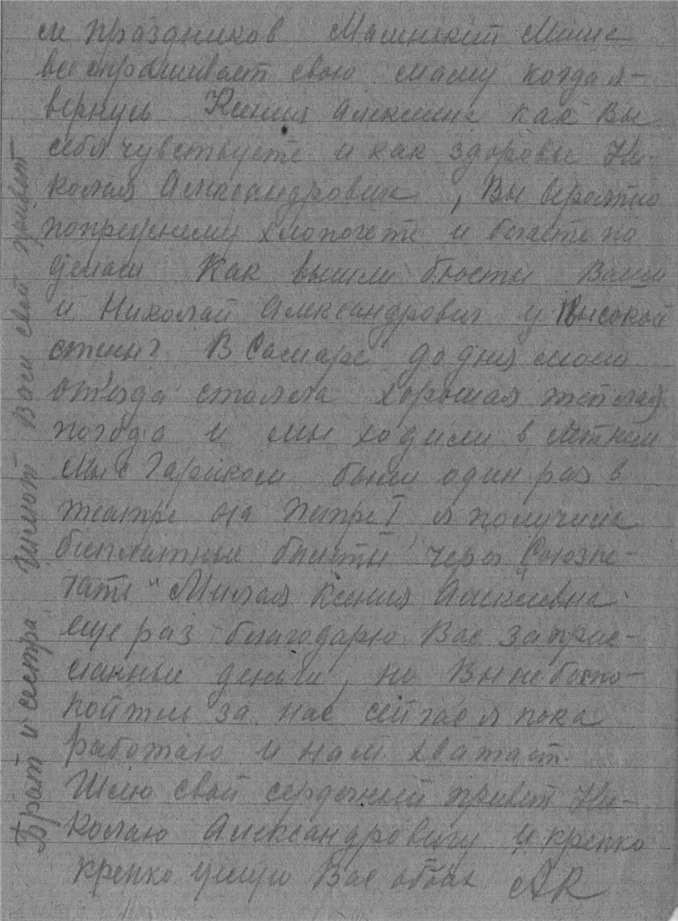 м праздников Маленький Миша
все спрашивает свою маму когда я
вернусь Ксения Алексеевна как Вы
себя чувствуете и как здоровье Ни-
колая Александровича, Вы вероятно
попрежнему хлопочете и бегаете по
делам Как вышли бюсты Ваши
и Николай Александрович у Высокой
стены? В Самаре до дня моего
от'езда стояла хорошая теплая
погода и мы ходили в летнем
Мы с Гариком были один раз в
театре на Петре I я получила
бесплатные билеты через "Союзпе-
чать" Милая Ксения Алексеевна
еще раз благодарю Вас за прис-
ланные деньги, но Вы не беспо-
койтесь за нас сейчас я пока
работаю и нам хватает.
Шлю свой сердечный привет Ни-
колаю Александровичу и крепко
крепко целую Вас обоих АК
Брат и сестра шлют Вам свой привет